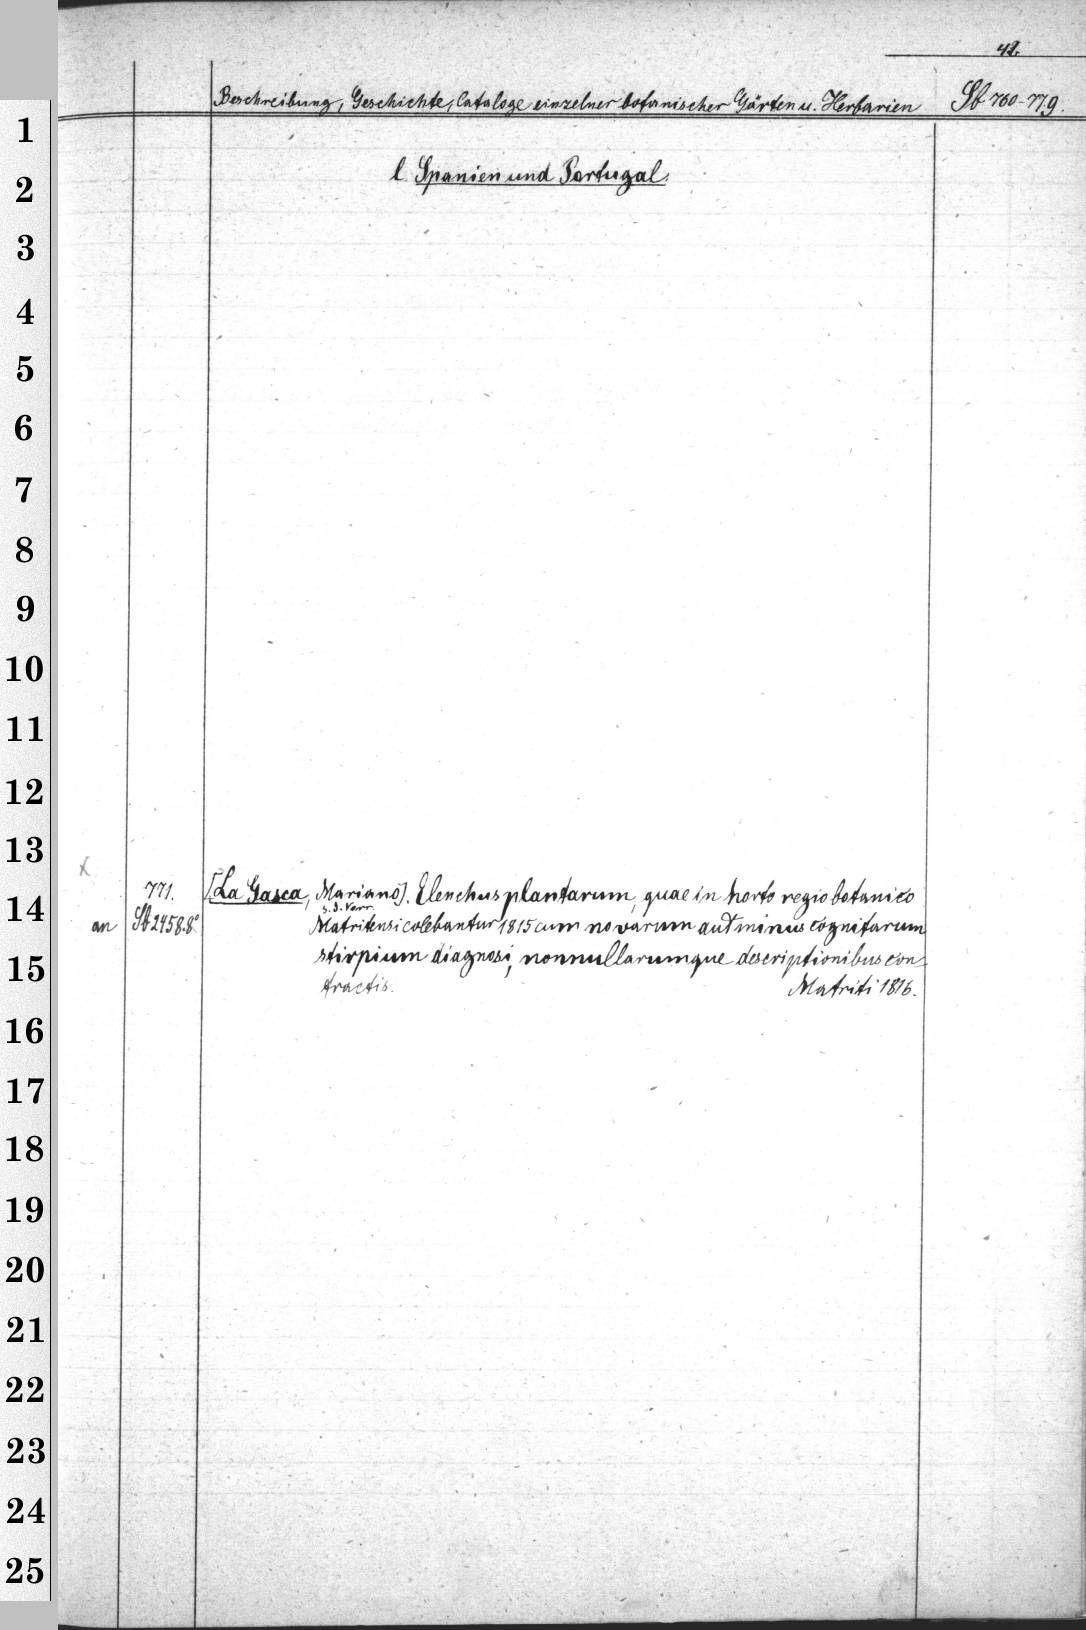 42.
Beschreibung, Geschichte, Cataloge einzelner botanischer Gärten u. Herbarien Sb 760-779.
l. Spanien und Portugal.
771. [La Gasca, Mariano]. Elenchus plantarum, quae in horto regio botanico
s. d. Vorr.
an Sb 2458.8° Matritensi colebantur 1815 cum novarum aut minus cognitarum
stirpium diagnosi, nonnullarumque descriptionibus con-
tractis. Matriti 1816.
1
2
3
4
5
6
7
8
9
10
11
12
13
14
15
16
17
18
19
20
21
22
23
24
25